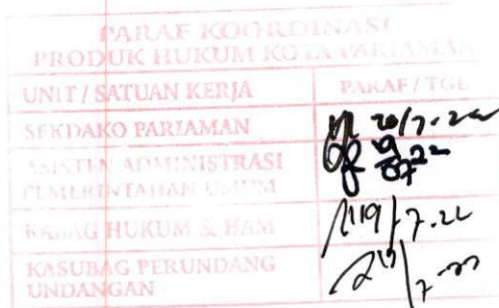 PARAF KOORDINASI
PRODUK HUKUM KOTA PARIAMAN
UNIT / SATUAN KERJA PARAF / TGL
SEKDAKO PARIAMAN 20/7-22
ASISTEN ADMINISTRASI
PEMERINTAHAN UMUM
KABAG HUKUM & HAM 19/7-22
KASUBAG PERUNDANG
UNDANGAN